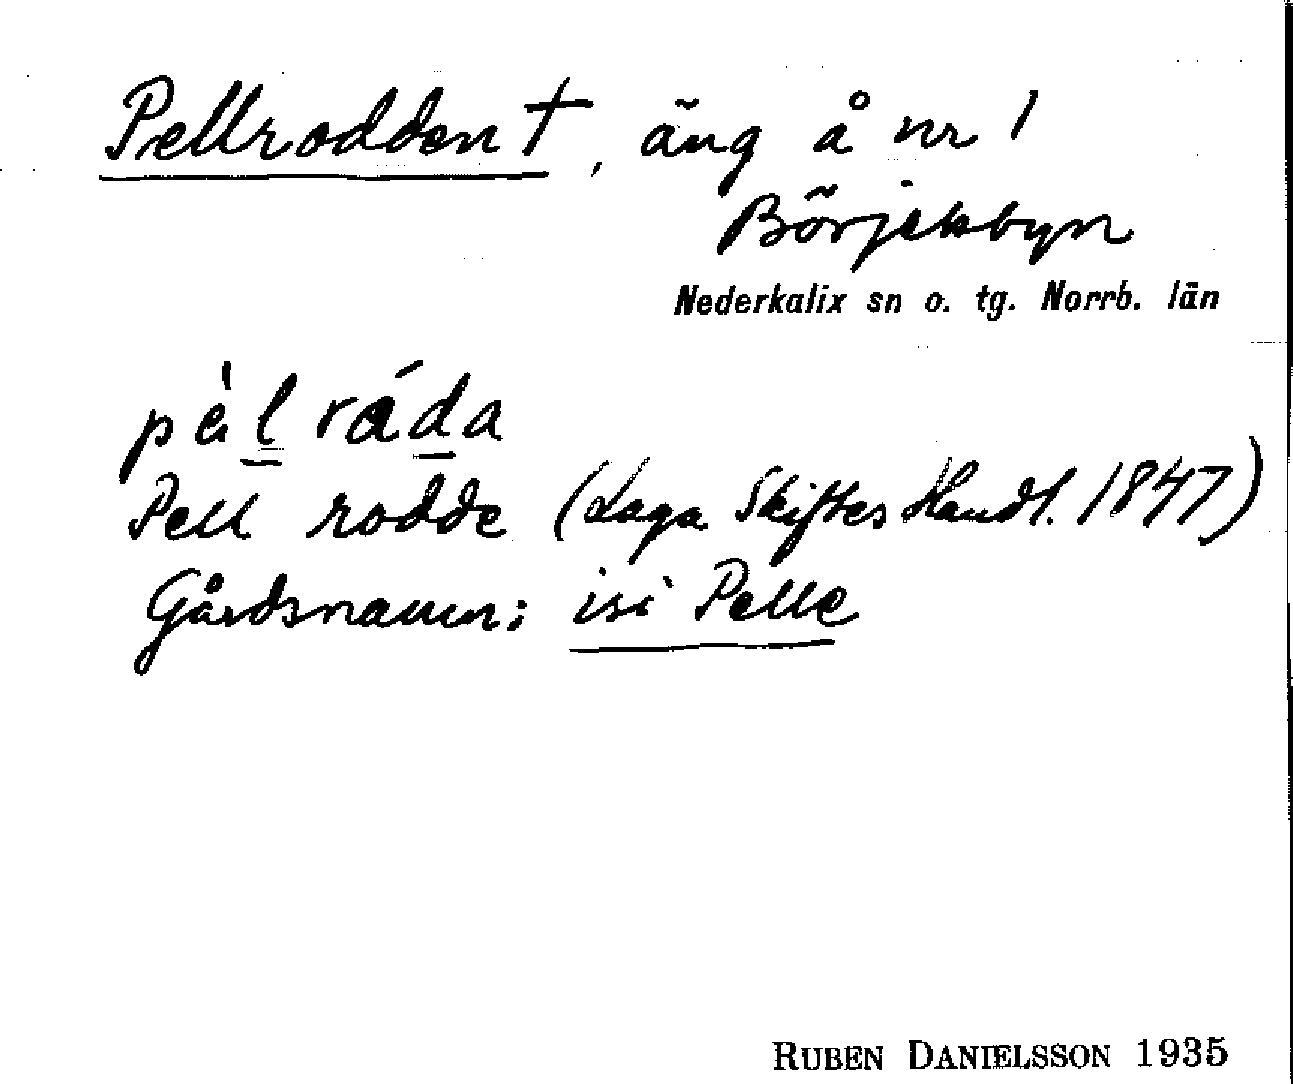 Pellrodden †, äng å nr 1
Börjelsbyn
Nederkalix sn o. tg. Norrb. län
pèl ráda
Pell rodde (Laga Skiftes Handl. 1847)
Gårdsnamn: isi Pelle
RUBEN DANIELSSON 1935